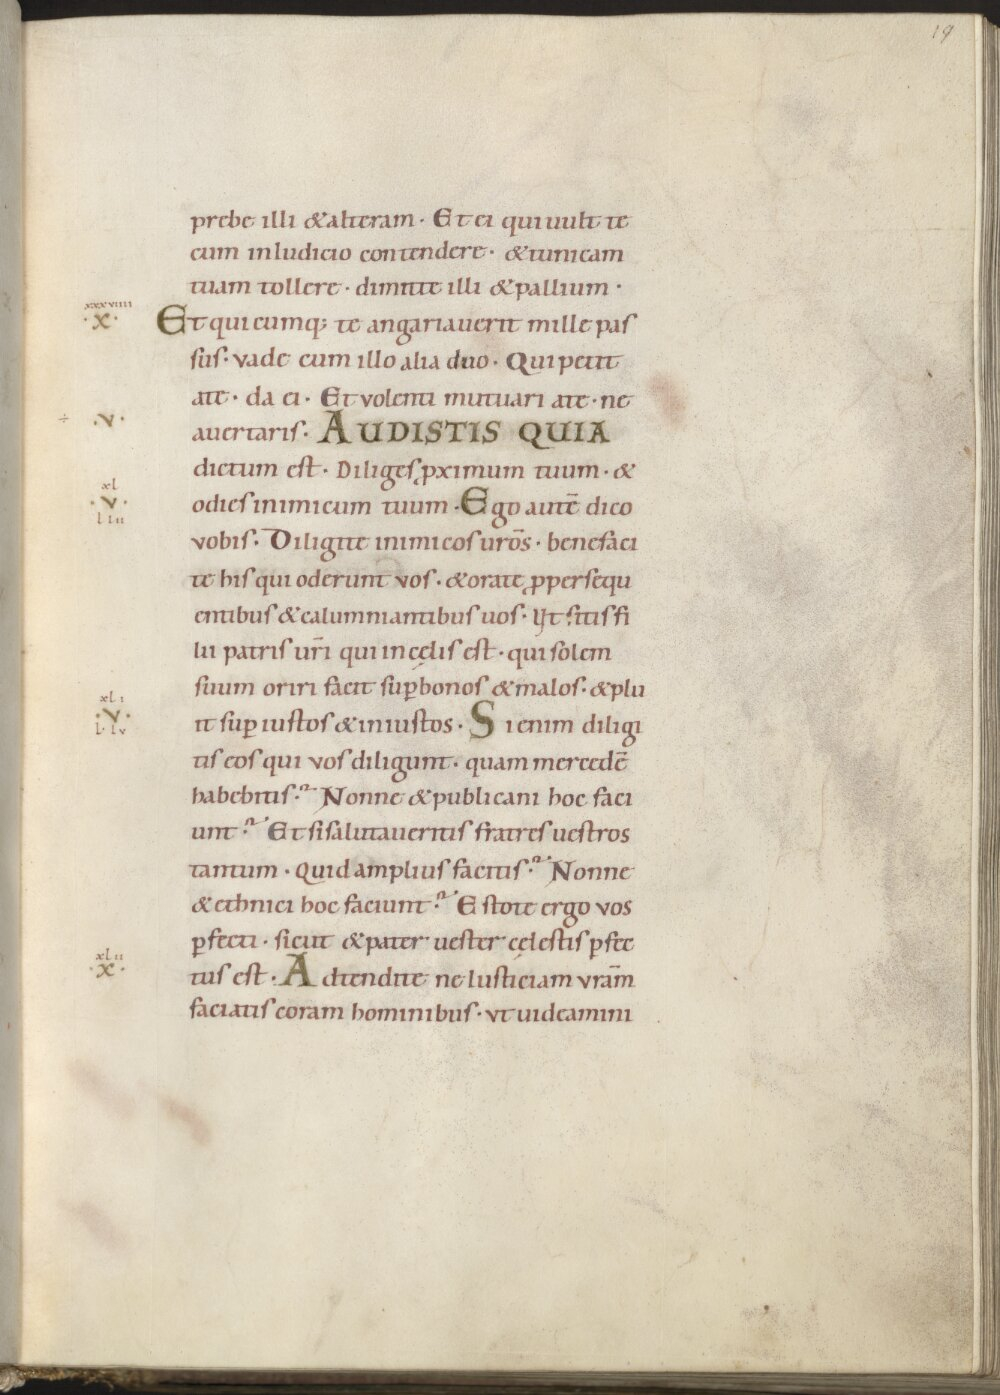 19
prebe illi &alteram · Et ei qui uult te
cum inludicio contendere · &tunicam
tuam tollere · dimitte illi &pallium ·
xxxviiii
·x· Et quicumq; te angariauerit mille pas
sus · vade cum illo alia duo · Qui petit
ate · da ei · Et volenti mutuari ate · ne
·v· auertaris · AUDISTIS QUIA
dictum est · Diliges pximum tuum · &
xl
·v· odies inimicum tuum · Ego autē dico
liii
vobis · Diligite inimicos urōs · benefaci
te his qui oderunt vos · &orate ppersequ
entibus &calumniantibus uos · Ut sitis fi
lii patris ur̄i qui in cęlis est · qui solem
suum oriri facit sup bonos &malos · &plu
xli
·v· it sup iustos &iniustos · Si enim diligi
l·lv
tis eos qui vos diligunt · quam mercedē
habebitis · Nonne &publicani hoc faci
unt · Et si salutaueritis fratres uestros
tantum · Quid amplius facitis · Nonne
&ethnici hoc faciunt · Estote ergo vos
pfecti · sicut &pater uester cęlestis pfec
xlii
·x· tus est · Adtendite ne lusticiam vrām
faciatis coram hominibus · vt uideamini